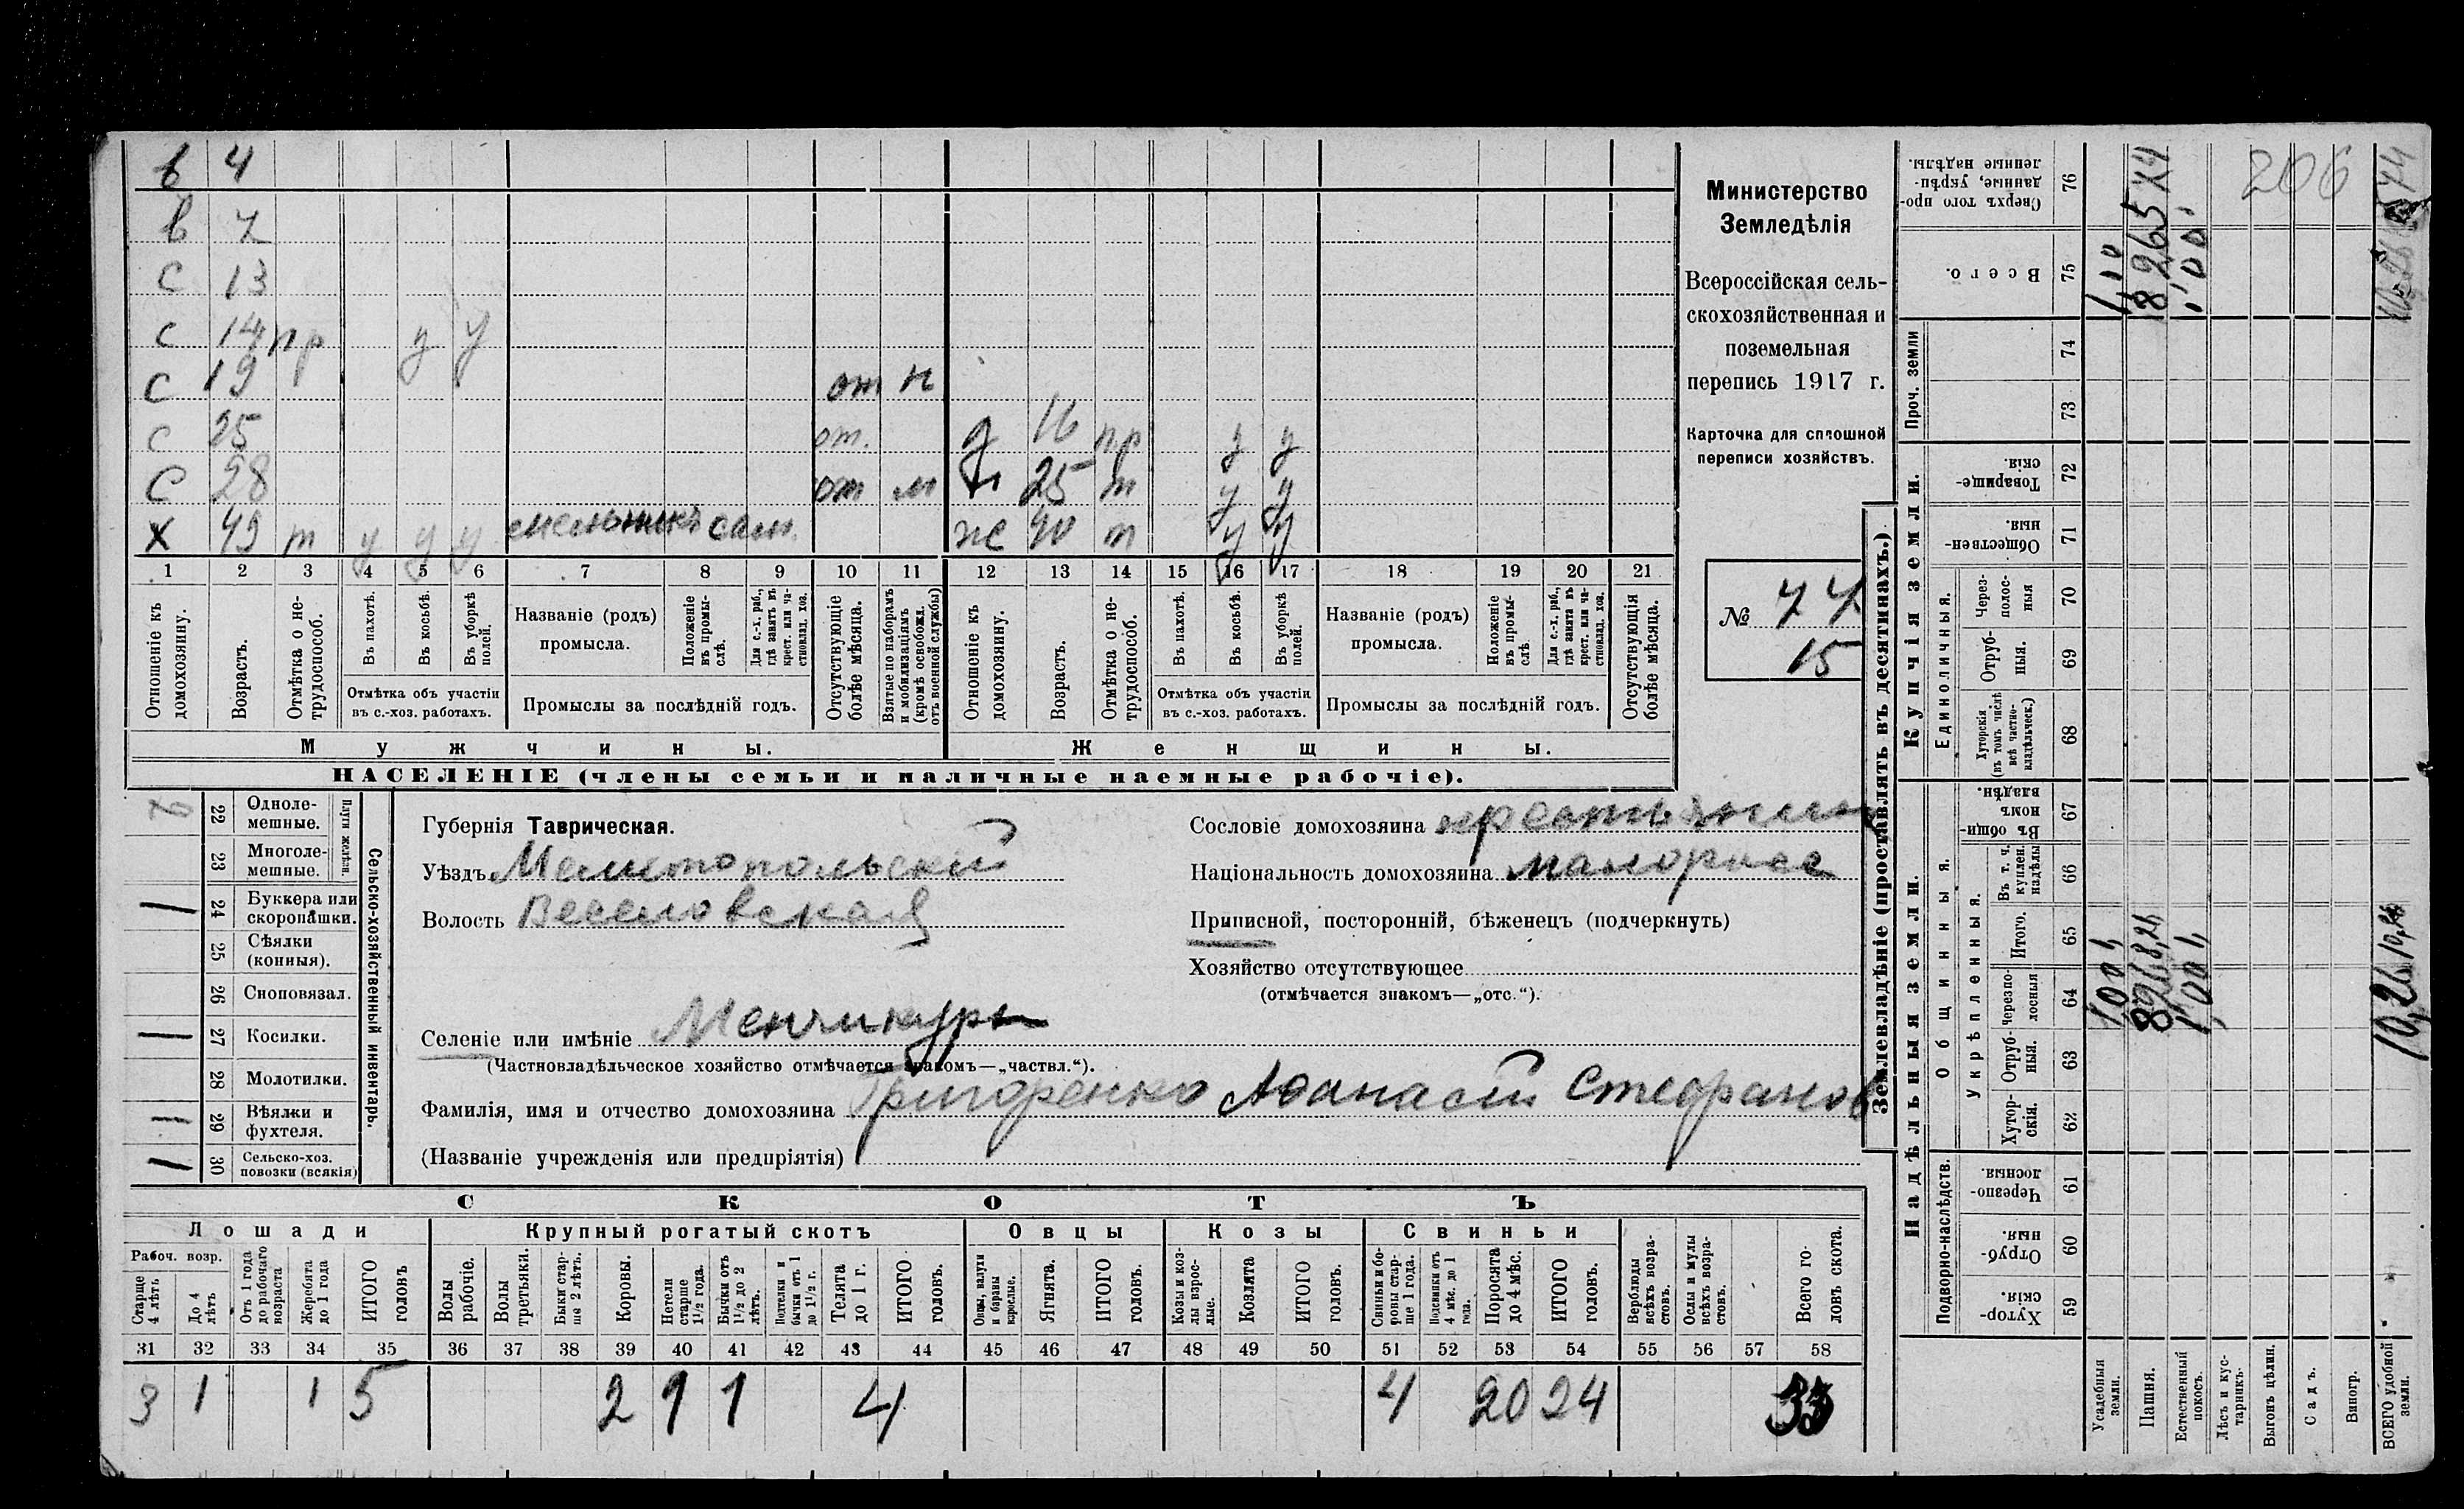 в 4
в 7
с 13
с 14 пр у у
с 19 от н
с 25 от. д 16 пр у у
с 28 от м н 25 т у у
х 49 т у у у мельникъ сам. же 40 т у у
1 2 3 4 5 6 7 8 9 10 11 12 13 14 15 16 17 18 19 20 21
Отношеніе къ домохозяину.
Возрастъ.
Отмѣтка о нетрудоспособ.
Въ пахотѣ.
Въ косьбѣ.
Въ уборкѣ полей.
Отмѣтка объ участіи въ с.-хоз. работахъ.
Названіе (родъ) промысла.
Положеніе въ промыслѣ.
Для с.-х. раб., гдѣ занятъ въ крест. или частновлад. хоз.
Промыслы за послѣдній годъ.
Отсутствующіе болѣе мѣсяца.
Взятые по наборамъ и мобилизаціямъ (кромѣ освобожд. отъ военной службы)
Отношеніе къ домохозяину.
Возрастъ.
Отмѣтка о нетрудоспособ.
Въ пахотѣ.
Въ косьбѣ.
Въ уборкѣ полей.
Отмѣтка объ участіи въ с.-хоз. работахъ.
Названіе (родъ) промысла.
Положеніе въ промыслѣ
Для с.-х. раб., гдѣ занята въ крест. или частновлад. хоз.
Промыслы за послѣдній годъ.
Отсутствующія болѣе мѣсяца.
Мужчины. Женщины.
НАСЕЛЕНІЕ (члены семьи и наличные наемные рабочіе).
Министерство
Земледѣлія
Всероссійская сель-
скохозяйственная и
поземельная
перепись 1917 г.
Карточка для сплошной
переписи хозяйствъ.
№ 77
15
Сельско-хозяйственный инвентарь.
Плуги желѣзн.
22 Одноле-
мешные.
23 Многоле-
мешные.
24 Буккера или
скоропашки.
25 Сѣялки
(конныя).
26 Сноповязал.
27 Косилки.
28 Молотилки.
29 Вѣялки и
фухтеля.
30 Сельско-хоз.
повозки (всякія)
Губернія Таврическая.
Уѣздъ Мелитопольскій
Волость Веселовская
Селеніе или имѣніе Менчикуры
(Частновладѣльческое хозяйство отмѣчается знакомъ—„частвл.“).
Фамилія, имя и отчество домохозяина Григоренко Афанасій Стефанов
(Названіе учрежденія или предпріятія)
Сословіе домохозяина крестьянин
Національность домохозяина малоросс
Приписной, посторонній, бѣженецъ (подчеркнуть)
Хозяйство отсутствующее
(отмѣчается знакомъ—„отс.“).
СКОТЪ
Лошади Крупный рогатый скотъ Овцы Козы Свиньи
Рабоч. возр.
Старше 4 лѣтъ
До 4 лѣтъ
Отъ 1 года до рабочаго возраста
Жеребята до 1 года
ИТОГО головъ
Волы рабочіе.
Волы третьяки.
Быки старше 2 лѣтъ.
Коровы.
Нетели старше 1½ года.
Бычки отъ 1½ до 2 лѣтъ.
Подтелки и бычки отъ 1 до 1½ г.
Телята до 1 г.
ИТОГО головъ.
Овцы, валухи и бараны взрослые.
Ягнята.
ИТОГО головъ.
Козы и козлы взрослые.
Козлята
ИТОГО головъ.
Свиньи и боровы старше 1 года.
Подсвинки отъ 4 мѣс. до 1 года.
Поросята до 4 мѣс.
ИТОГО головъ.
Верблюды всѣхъ возрастовъ.
Ослы и мулы всѣхъ возрастовъ.
Всего головъ скота.
31 32 33 34 35 36 37 38 39 40 41 42 43 44 45 46 47 48 49 50 51 52 53 54 55 56 57 58
3 1 1 5 2 1 1 4 4 20 24 33
Землевладѣніе (проставлять въ десятинахъ.)
Надѣльныя земли. Купчія земли. Проч. земли
Подворно-наслѣдств. Общинныя. Единоличныя.
Укрѣпленныя.
Хуторскія 59
Отрубныя 60
Черезполосныя. 61
Хуторскія. 62
Отрубныя. 63
Черезполосныя 64
Итого. 65
Въ т. ч. куплен. надѣлы 66
Въ общинномъ владѣн. 67
Хуторскія (въ томъ числѣ всѣ частновладѣльческ.) 68
Отрубныя. 69
Черезполосныя 70
Общественныя. 71
Товарищескія. 72
73
74
Всего. 75
Сверхъ того проданные, укрѣпленные надѣлы. 76
Усадебныя земли.
Пашня.
Естественный покосъ.
Лѣсъ и кустарникъ.
Выгонъ цѣлин.
Садъ.
Виногр.
ВСЕГО удобной земли.
206